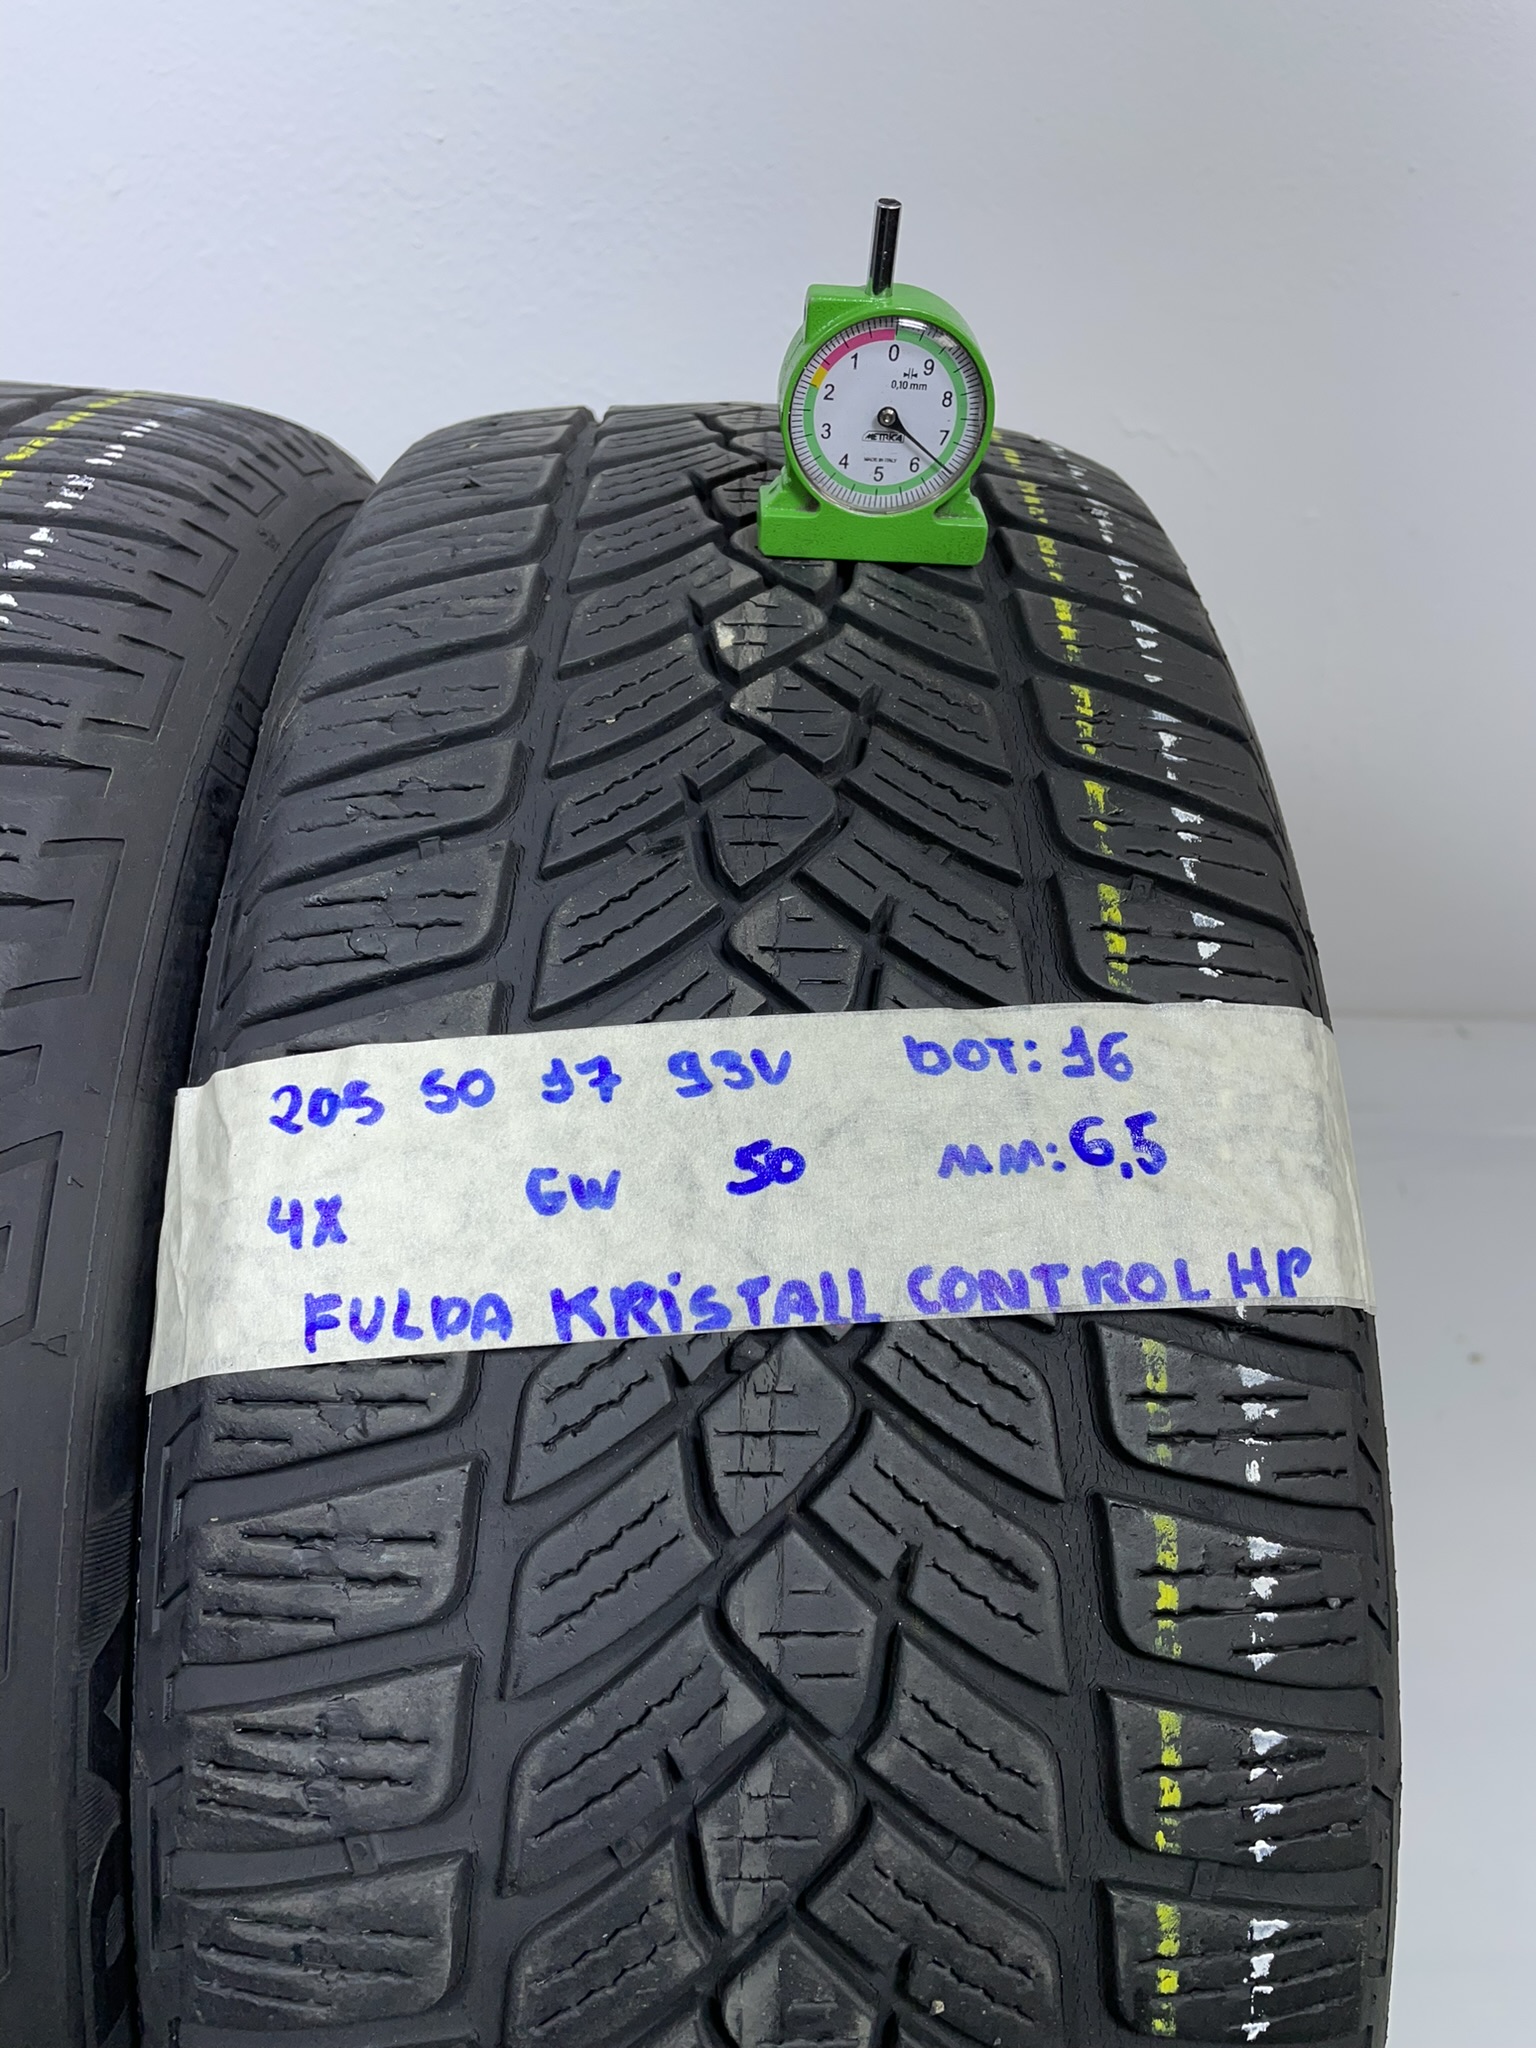 0
1
9
0,10 mm
2
8
3
7
METRICA
MADE IN ITALY
4
6
5
205 50 17 93V DOT: 16
4X GW 50 MM: 6,5
FULDA KRISTALL CONTROL HP